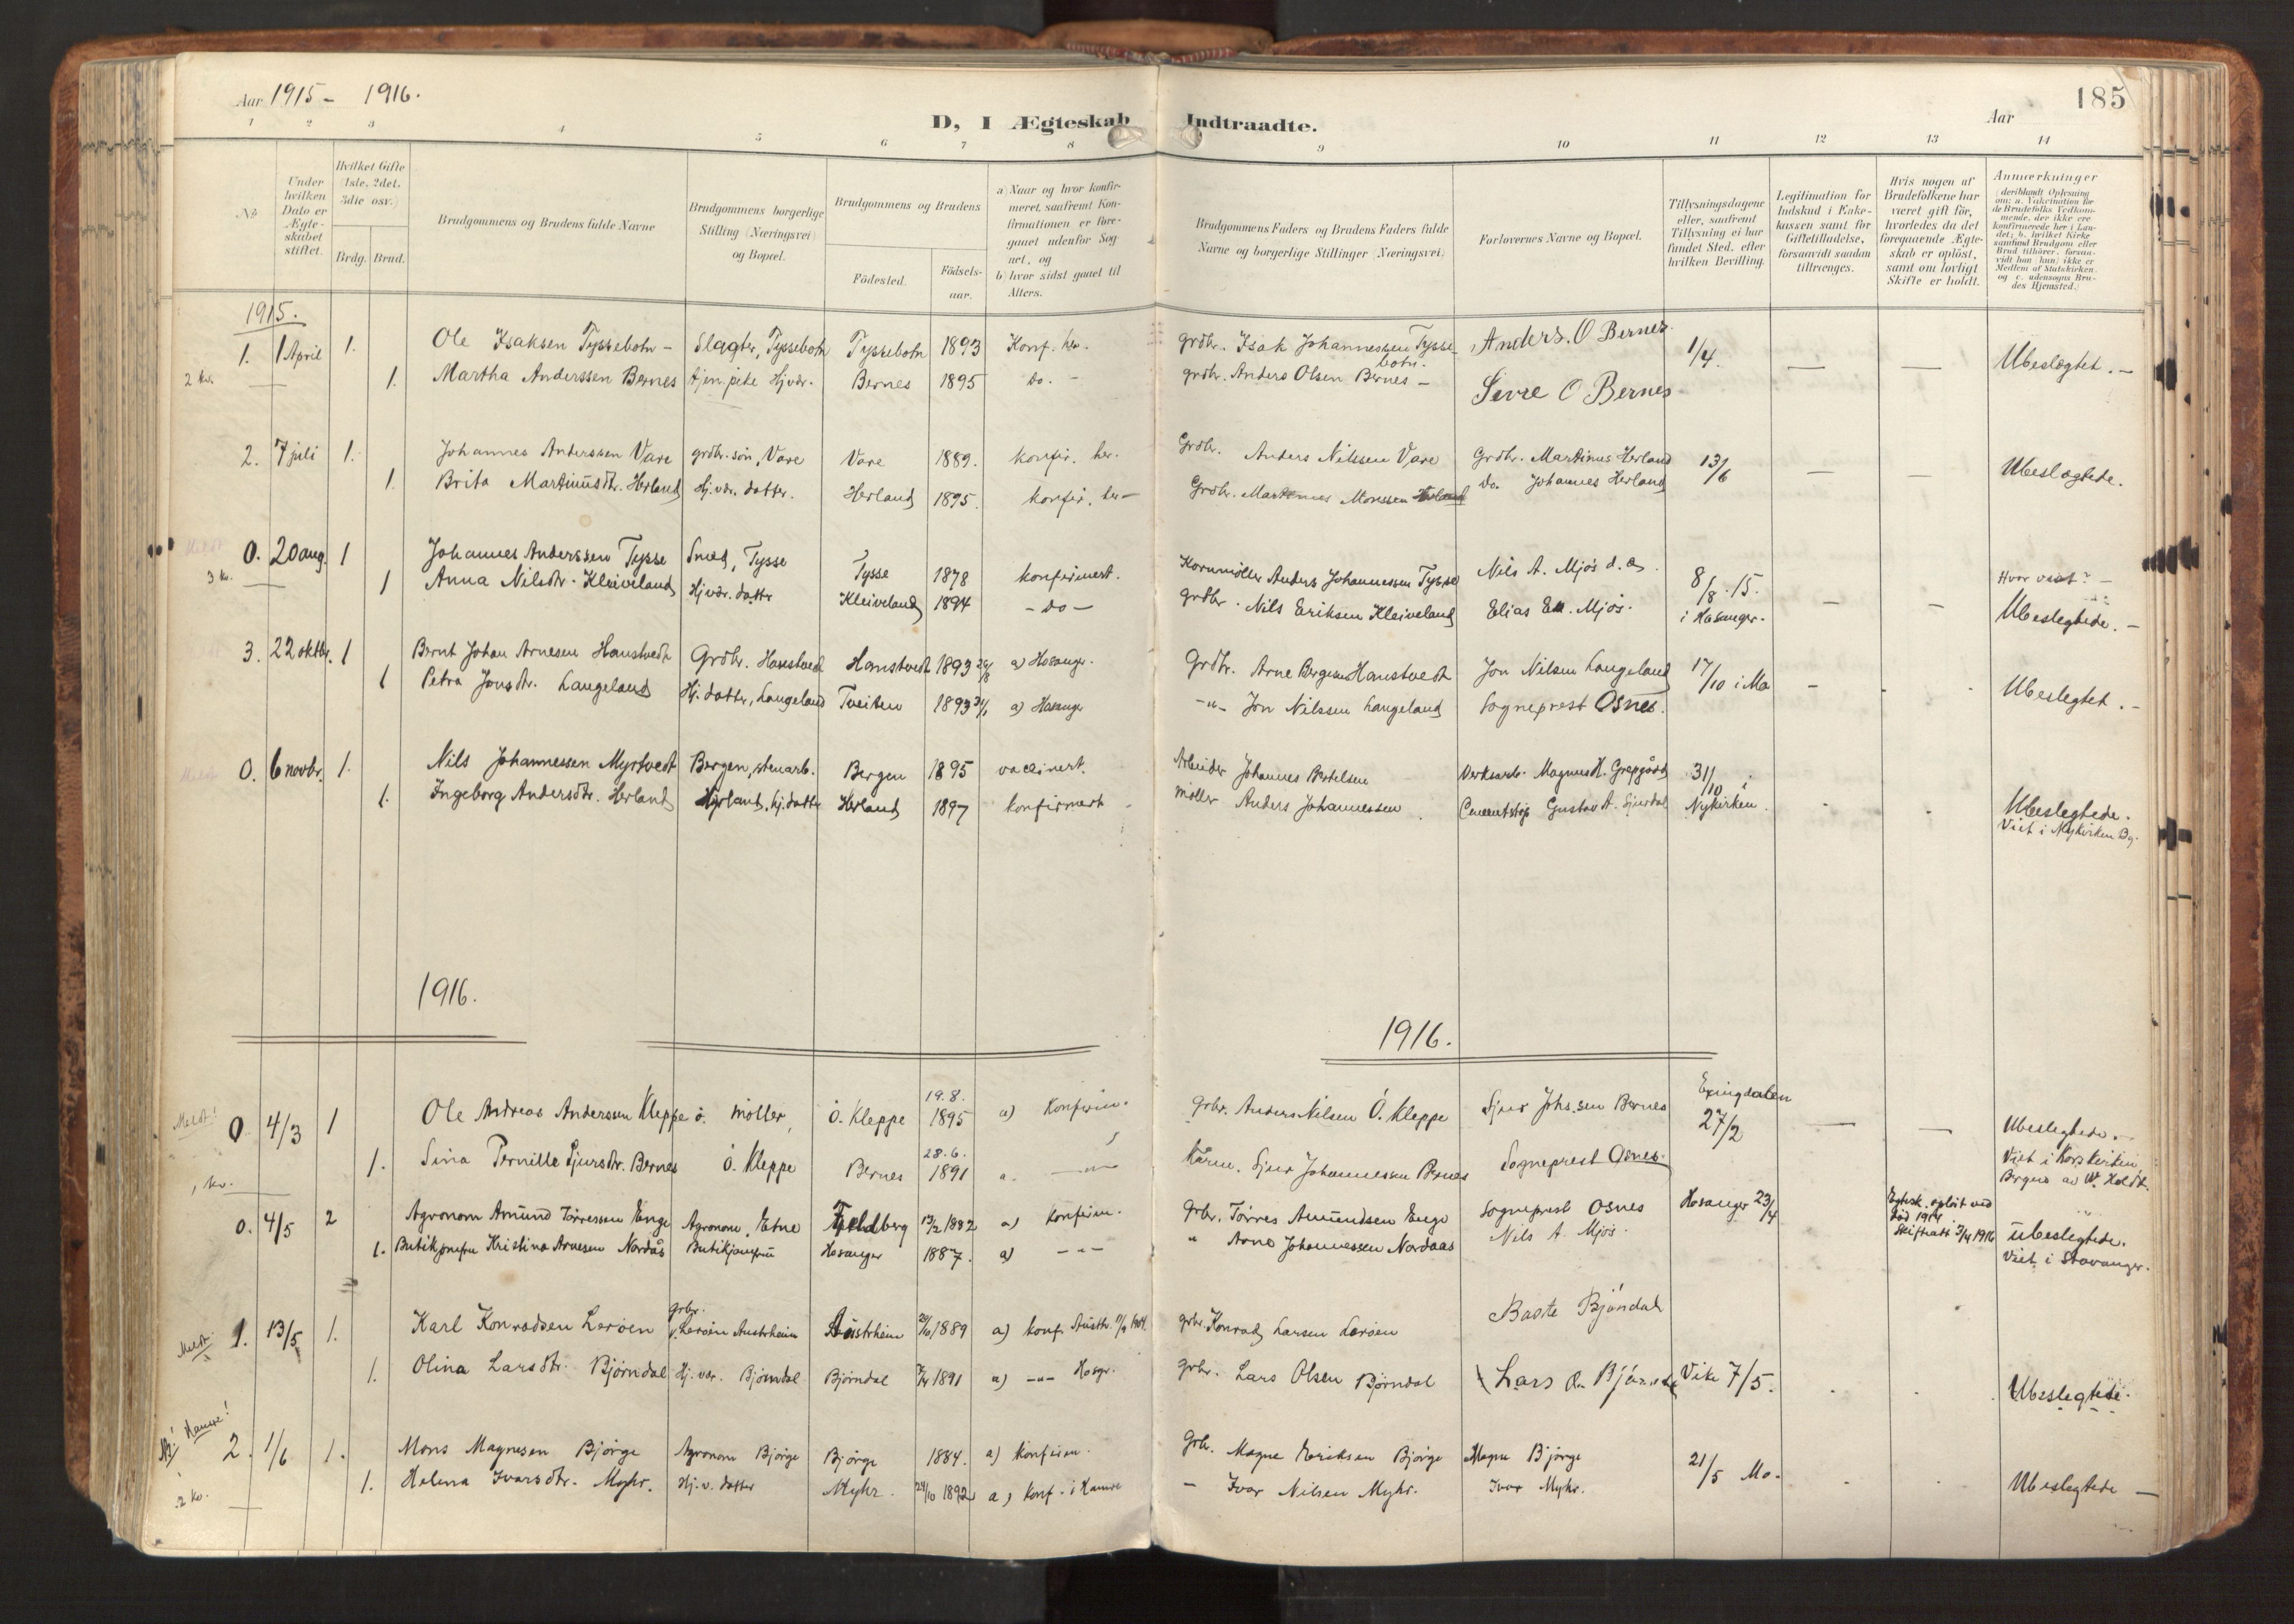 Aar 1915 - 1916.
185
D, I Ægteskab Indtraadte.
Aar
1 2 3 4 5 6 7 8 9 10 11 12 13 14
No
Under hvilken Dato er Ægteskabet stiftet.
Hvilket Gifte (1ste, 2det, 3die osv.)
Brdg. Brud.
Brudgommens og Brudens fulde Navne
Brudgommens borgerlige Stilling (Næringsvei) og Bopæl.
Brudgommens og Brudens
Födested.
Födselsaar.
a) Naar og hvor konfirmeret, saafremt Konfirmationen er foregaaet udenfor Sognet, og
b) hvor sidst gaaet til Alters.
Brudgommens Faders og Brudens Faders fulde Navne og borgerlige Stillinger (Næringsvei)
Forlovernes Navne og Bopæl.
Tillysningsdagene eller, saafremt Tillysning ei har fundet Sted, efter hvilken Bevilling.
Legitimation for Indskud i Enkekassen samt for Giftetilladelse, forsaavidt saadan tiltrænges.
Hvis nogen af Brudefolkene har været gift för, hvorledes da det foregaaende Ægteskab er oplöst, samt om lovligt Skifte er holdt.
Anmærkninger (deriblandt Oplysning om: a. Vakcination for de Brudefolks Vedkommende, der ikke ere konfirmerede her i Landet; b. hvilket Kirkesamfund Brudgom eller Brud tilhører, forsaavidt han (hun) ikke er Medlem af Statskirken, og c. udensogns Brudes Hjemsted.)
1915.
1. 1 April 1. Ole Isaksen Tyssebotn - Slagter, Tyssebotn Tyssebotn 1893 Konf. her. grdbr. Isak Johannessen Tyssebotn. Anders. O Bernes. 1/4. — — Ubeslægtet. —
2 kr. 1. Martha Anderssen Bernes tjen.pike Hjvær. Bernes 1895 do. - grdbr. Anders Olsen Bernes — Sevre O Bernes
2. 7 juli 1. Johannes Anderssen Vare grdbr. søn, Vare Vare 1889. konfir. her. Grdbr. Anders Nilssen Vare Grdbr. Martinus Herland 13/6 — — Ubeslægtede.
1. Brita Martinusdtr. Herland Hj.vær. datter. Herland 1895. konfir. her — Grdbr. Martinus Monssen Herland do. Johannes Herland
Meldt 0. 20 aug. 1 Johannes Anderssen Tysse Smed, Tysse Tysse 1878 konfirmert. Kornmøller Anders Johannessen Tysse Nils A. Mjøs d.æ. 8/8 15. i Hosanger. — — Hvor viet? —
3 kr. 1 Anna Nilsdtr. Kleiveland Hjvær. datter Kleiveland 1894 - do - grdbr. Nils Eriksen Kleiveland Elias E. Mjøs. Ubeslegtede. —
3. 22 oktbr. 1 Bernt Johan Arnesen Hanstvedt Grdbr. Hanstvedt Hanstvedt 1893 a) Hosanger. Grdbr. Arne Bergesen Hanstvedt Jon Nilsen Langeland 17/10 i Mo - - Ubeslegtet. -
1 Petra Jonsdtr. Langeland Hj. datter, Langeland Tveiten 1893 a) Hosanger -"- Jon Nilssen Langeland Sogneprest Osnes.
Meldt 0. 6 novbr. 1. Nils Johannessen Myrtvedt Bergen, stenarb. Bergen 1895 vaccinert. Arbeider Johannes Bertelsen Verksarb. Magnus H. Grepgård 31/10 i Nykirken.
1. Ingeborg Andersdtr. Herland Herland, hj.datter Herland 1897 konfirmert Møller Anders Johannessen Cementstøp Gustav A. Sjurdal Ubeslegtede.
Viet i Nykirken Bg.
1916.
1916.
Meldt! 0 4/3 1 Ole Andreas Anderssen Kleppe ö. möller, Ö. Kleppe 19.8. 1895 a) Konfirm. Grbr. Anders Nilsen Ö. Kleppe Sjur Johs.sen Bernes Exingdalen 27/2 — — Ubeslegtede.
1 kr. 1. Sina Pernille Sjursdtr. Bernes Ö. Kleppe Bernes 28.6. 1891 a. —"— Sjur Johannessen Bernes Sogneprest Osnes. Viet i Korskirken Bergen av W. Koldt.
0. 4/5 2 Agronom Amund Tørressen Enge Agronom, Etne Feldberg 1882 a) konfirm. Grbr. Tørres Amundsen Enge Sogneprest Osnes Hosanger 23/4 Egtesk. opløst ved död 1914 Skifteatt 3/4 1916 ubeslegtede.
1. Butikjomfru Kristina Arnesen Nordås Butikjomfru Hosanger 1887. a) -"- " Arne Johannessen Nordaas Nils A. Mjøs. Viet i Stavanger.
Meldt 1. 13/5 1. Karl Konradsen Lerøen grbr. Lerøen Austrheim Austrheim 1889 a) konf. Austrh. grbr. Konrad Larsen Lerøen Baste Bjöndal
1. Olina Larsdtr. Bjørndal Hj. vær. Bjørndal Bjørndal 1891 a) -"- Hosgr. grbr. Lars Olsen Bjørndal Lars O. Bjørndal Vike 7/5. Ubeslegtede.
Hamre! 2. 1/6 1. Mons Magnesen Bjørge Agronom Bjørge Bjørge 1884. a) konfirm. Grbr. Magne Eriksen Bjørge Magne Bjørge 21/5 Mo.
2 kr. 1. Helena Ivarsdtr. Myhr. Hj. v. datter Myhr. 24/10 1892 a) konf. i Hamre - Ivar Nilsen Myhr. Ivar Myhr. Ubeslegtede —